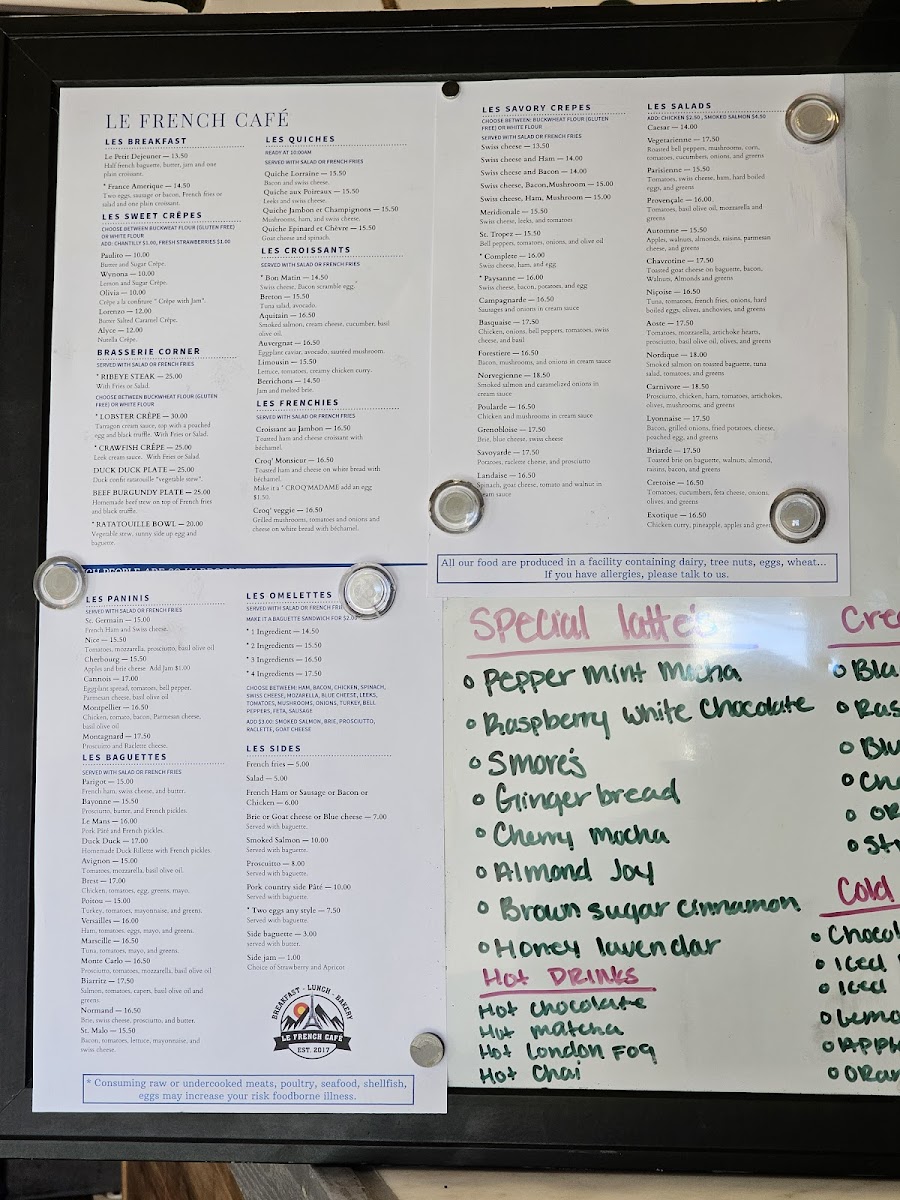 LE FRENCH CAFÉ
LES BREAKFAST
Le Petit Dejeuner — 13.50
Half french baguette, butter, jam and one
plain croissant.
* France Amerique — 14.50
Two eggs, sausage or bacon, French fries or
salad and one plain croissant.
LES SWEET CRÊPES
CHOOSE BETWEEN BUCKWEAT FLOUR (GLUTEN FREE)
OR WHITE FLOUR
ADD: CHANTILLY $1.00, FRESH STRAWBERRIES $1.00
Paulito — 10.00
Butter and Sugar Crêpe.
Wynona — 10.00
Lemon and Sugar Crêpe.
Olivia — 10.00
Crêpe a la confiture " Crêpe with Jam".
Lorenzo — 12.00
Butter Salted Caramel Crêpe.
Alyce — 12.00
Nutella Crêpe.
BRASSERIE CORNER
SERVED WITH SALAD OR FRENCH FRIES
* RIBEYE STEAK — 25.00
With Fries or Salad.
CHOOSE BETWEEN BUCKWEAT FLOUR (GLUTEN
FREE) OR WHITE FLOUR
* LOBSTER CRÊPE — 30.00
Tarragon cream sauce, top with a poached
egg and black truffle. With Fries or Salad.
* CRAWFISH CRÊPE — 25.00
Leek cream sauce. With Fries or Salad.
DUCK DUCK PLATE — 25.00
Duck confit ratatouille "vegetable stew".
BEEF BURGUNDY PLATE — 25.00
Homemade beef stew on top of French fries
and black truffle.
* RATATOUILLE BOWL — 20.00
Vegetable stew, sunny side up egg and
baguette.
LES QUICHES
READY AT 10:00AM
SERVED WITH SALAD OR FRENCH FRIES
Quiche Lorraine — 15.50
Bacon and swiss cheese.
Quiche aux Poireaux — 15.50
Leeks and swiss cheese.
Quiche Jambon et Champignons — 15.50
Mushrooms, ham, and swiss cheese.
Quiche Epinard et Chèvre — 15.50
Goat cheese and spinach.
LES CROISSANTS
SERVED WITH SALAD OR FRENCH FRIES
* Bon Matin — 14.50
Swiss cheese, Bacon scramble egg.
Breton — 15.50
Tuna salad, avocado.
Aquitain — 16.50
Smoked salmon, cream cheese, cucumber, basil
olive oil.
Auvergnat — 16.50
Eggplant caviar, avocado, sauteed mushroom.
Limousin — 15.50
Lettuce, tomatoes, creamy chicken curry.
Berrichons — 14.50
Jam and melted brie.
LES FRENCHIES
SERVED WITH SALAD OR FRENCH FRIES
Croissant au Jambon — 16.50
Toasted ham and cheese croissant with
béchamel.
Croq' Monsieur — 16.50
Toasted ham and cheese on white bread with
béchamel.
Make it a " CROQ'MADAME add an egg
$1.50.
Croq' veggie — 16.50
Grilled mushrooms, tomatoes and onions and
cheese on white bread with béchamel.
LES SAVORY CREPES
CHOOSE BETWEEN: BUCKWHEAT FLOUR (GLUTEN
FREE) OR WHITE FLOUR
SERVED WITH SALAD OR FRENCH FRIES
Swiss cheese — 13.50
Swiss cheese and Ham — 14.00
Swiss cheese and Bacon — 14.00
Swiss cheese, Bacon,Mushroom — 15.00
Swiss cheese, Ham, Mushroom — 15.00
Meridionale — 15.50
Swiss cheese, leeks, and tomatoes
St. Tropez — 15.50
Bell peppers, tomatoes, onions, and olive oil
* Complete — 16.00
Swiss cheese, ham, and egg
* Paysanne — 16.00
Swiss cheese, bacon, potatoes, and egg
Campagnarde — 16.50
Sausages and onions in cream sauce
Basquaise — 17.50
Chicken, onions, bell peppers, tomatoes, swiss
cheese, and basil
Forestiere — 16.50
Bacon, mushrooms, and onions in cream sauce
Norvegienne — 18.50
Smoked salmon and caramelized onions in
cream sauce
Poularde — 16.50
Chicken and mushrooms in cream sauce
Grenobloise — 17.50
Brie, blue cheese, swiss cheese
Savoyarde — 17.50
Potatoes, raclette cheese, and prosciutto
Landaise — 16.50
Spinach, goat cheese, tomato and walnut in
cream sauce
LES SALADS
ADD: CHICKEN $2.50 , SMOKED SALMON $4.50
Caesar — 14.00
Vegetarienne — 17.50
Roasted bell peppers, mushrooms, corn,
tomatoes, cucumbers, onions, and greens
Parisienne — 15.50
Tomatoes, swiss cheese, ham, hard boiled
eggs, and greens
Provençale — 16.00
Tomatoes, basil olive oil, mozzarella and
greens
Automne — 15.50
Apples, walnuts, almonds, raisins, parmesan
cheese, and greens
Chavrotine — 17.50
Toasted goat cheese on baguette, bacon,
Walnuts, Almonds and greens
Niçoise — 16.50
Tuna, tomatoes, french fries, onions, hard
boiled eggs, olives, anchovies, and greens
Aoste — 17.50
Tomatoes, mozzarella, artichoke hearts,
prosciutto, basil olive oil, olives, and greens
Nordique — 18.00
Smoked salmon on toasted baguette, tuna
salad, tomatoes, and greens
Carnivore — 18.50
Prosciutto, chicken, ham, tomatoes, artichokes,
olives, mushrooms, and greens
Lyonnaise — 17.50
Bacon, grilled onions, fried potatoes, cheese,
poached egg, and greens
Briarde — 17.50
Toasted brie on baguette, walnuts, almond,
raisins, bacon, and greens
Cretoise — 16.50
Tomatoes, cucumbers, feta cheese, onions,
olives, and greens
Exotique — 16.50
Chicken curry, pineapple, apples and greens
All our food are produced in a facility containing dairy, tree nuts, eggs, wheat...
If you have allergies, please talk to us.
LES PANINIS
SERVED WITH SALAD OR FRENCH FRIES
St. Germain — 15.00
French Ham and Swiss cheese.
Nice — 15.50
Tomatoes, mozzarella, prosciutto, basil olive oil
Cherbourg — 15.50
Apples and brie cheese. Add Jam $1.00
Cannois — 17.00
Eggplant spread, tomatoes, bell pepper.
Parmesan cheese, basil olive oil
Montpellier — 16.50
Chicken, tomato, bacon, Parmesan cheese,
basil olive oil
Montagnard — 17.50
Prosciutto and Raclette cheese.
LES BAGUETTES
SERVED WITH SALAD OR FRENCH FRIES
Parigot — 15.00
French ham, swiss cheese, and butter.
Bayonne — 15.50
Prosciutto, butter, and French pickles.
Le Mans — 16.00
Pork Pâté and French pickles.
Duck Duck — 17.00
Homemade Duck Rillette with French pickles.
Avignon — 15.00
Tomatoes, mozzarella, basil olive oil.
Brest — 17.00
Chicken, tomatoes, egg, greens, mayo.
Poitou — 15.00
Turkey, tomatoes, mayonnaise, and greens.
Versailles — 16.00
Ham, tomatoes, eggs, mayo, and greens.
Marseille — 16.50
Tuna, tomatoes, mayo, and greens.
Monte Carlo — 16.50
Prosciutto, tomatoes, mozzarella, basil olive oil
Biarritz — 17.50
Salmon, tomatoes, capers, basil olive oil and
greens.
Normand — 16.50
Brie, swiss cheese, prosciutto, and butter.
St. Malo — 15.50
Bacon, tomatoes, lettuce, mayonnaise, and
swiss cheese.
LES OMELETTES
SERVED WITH SALAD OR FRENCH FRI
MAKE IT A BAGUETTE SANDWICH FOR $2.00
* 1 Ingredient — 14.50
* 2 Ingredients — 15.50
* 3 Ingredients — 16.50
* 4 Ingredients — 17.50
CHOOSE BETWEEM: HAM, BACON, CHICKEN, SPINACH,
SWISS CHEESE, MOZARELLA, BLUE CHEESE, LEEKS,
TOMATOES, MUSHROOMS, ONIONS, TURKEY, BELL
PEPPERS, FETA, SAUSAGE
ADD $3.00: SMOKED SALMON, BRIE, PROSCIUTTO,
RACLETTE, GOAT CHEESE
LES SIDES
French fries — 5.00
Salad — 5.00
French Ham or Sausage or Bacon or
Chicken — 6.00
Brie or Goat cheese or Blue cheese — 7.00
Served with baguette.
Smoked Salmon — 10.00
Served with baguette.
Proscuitto — 8.00
Served with baguette.
Pork country side Pâté — 10.00
Served with baguette.
* Two eggs any style — 7.50
Served with baguette.
Side baguette — 3.00
served with butter.
Side jam — 1.00
Choice of Strawberry and Apricot
BREAKFAST - LUNCH - BAKERY
LE FRENCH CAFÉ
EST. 2017
* Consuming raw or undercooked meats, poultry, seafood, shellfish,
eggs may increase your risk foodborne illness.
Special latte's
Pepper mint mocha
Raspberry white chocolate
Smore's
Ginger bread
Cherry mocha
Almond Joy
Brown sugar cinnamon
Honey lavendar
Hot DRINKS
Hot chocolate
Hot matcha
Hot London Fog
Hot Chai
Cre
Bla
Ras
Blu
Cha
OR
Str
Cold
Chocol
Iced
Iced
Lemo
Apple
ORan